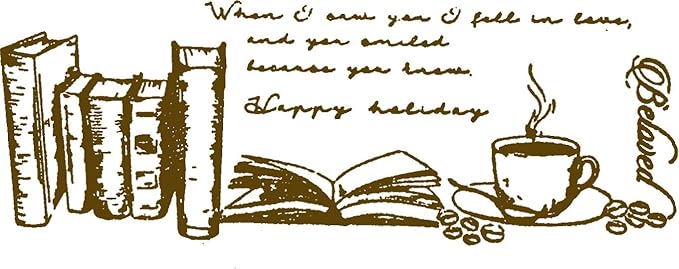 When I saw you I fell in love,
and you smiled
because you knew.
Happy holiday
Beloved